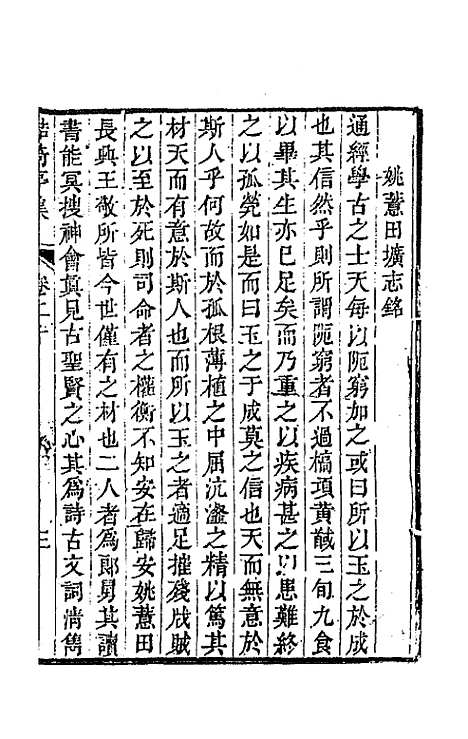 姚薏田壙志銘
通經學古之士天每以阨窮如之或曰所以玉之於成
也其信然乎則所謂阨窮者不過槁項黄馘三旬九食
以畢其生亦已足矣而乃重之以疾病甚之以患難終
之以孤煢如是而曰玉之于成莫之信也天而無意於
斯人乎何故而於孤根薄植之中屈沆瀣之精以篤其
材天而有意於斯人也而所以玉之者適足摧殘戕賊
之以至於死則司命者之權衡不知安在歸安姚薏田
長興王敬所皆今世僅有之材也二人者為郎舅其讀
書能冥搜神會冀見古聖賢之心其爲詩古文詞清雋
鮚埼亭集 卷二十 三